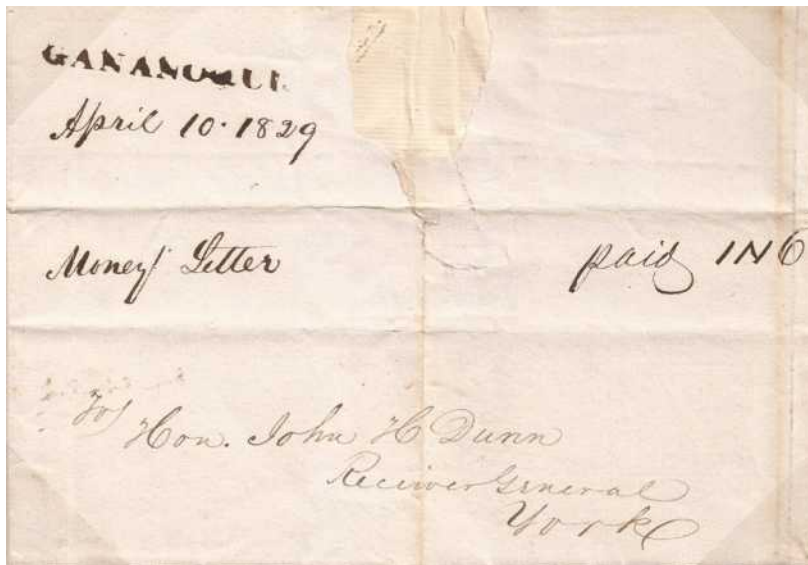 GANANOQUE
April 10. 1829
Money Letter
paid 1N6
To/
Hon. John H Dunn
Reciever General
York